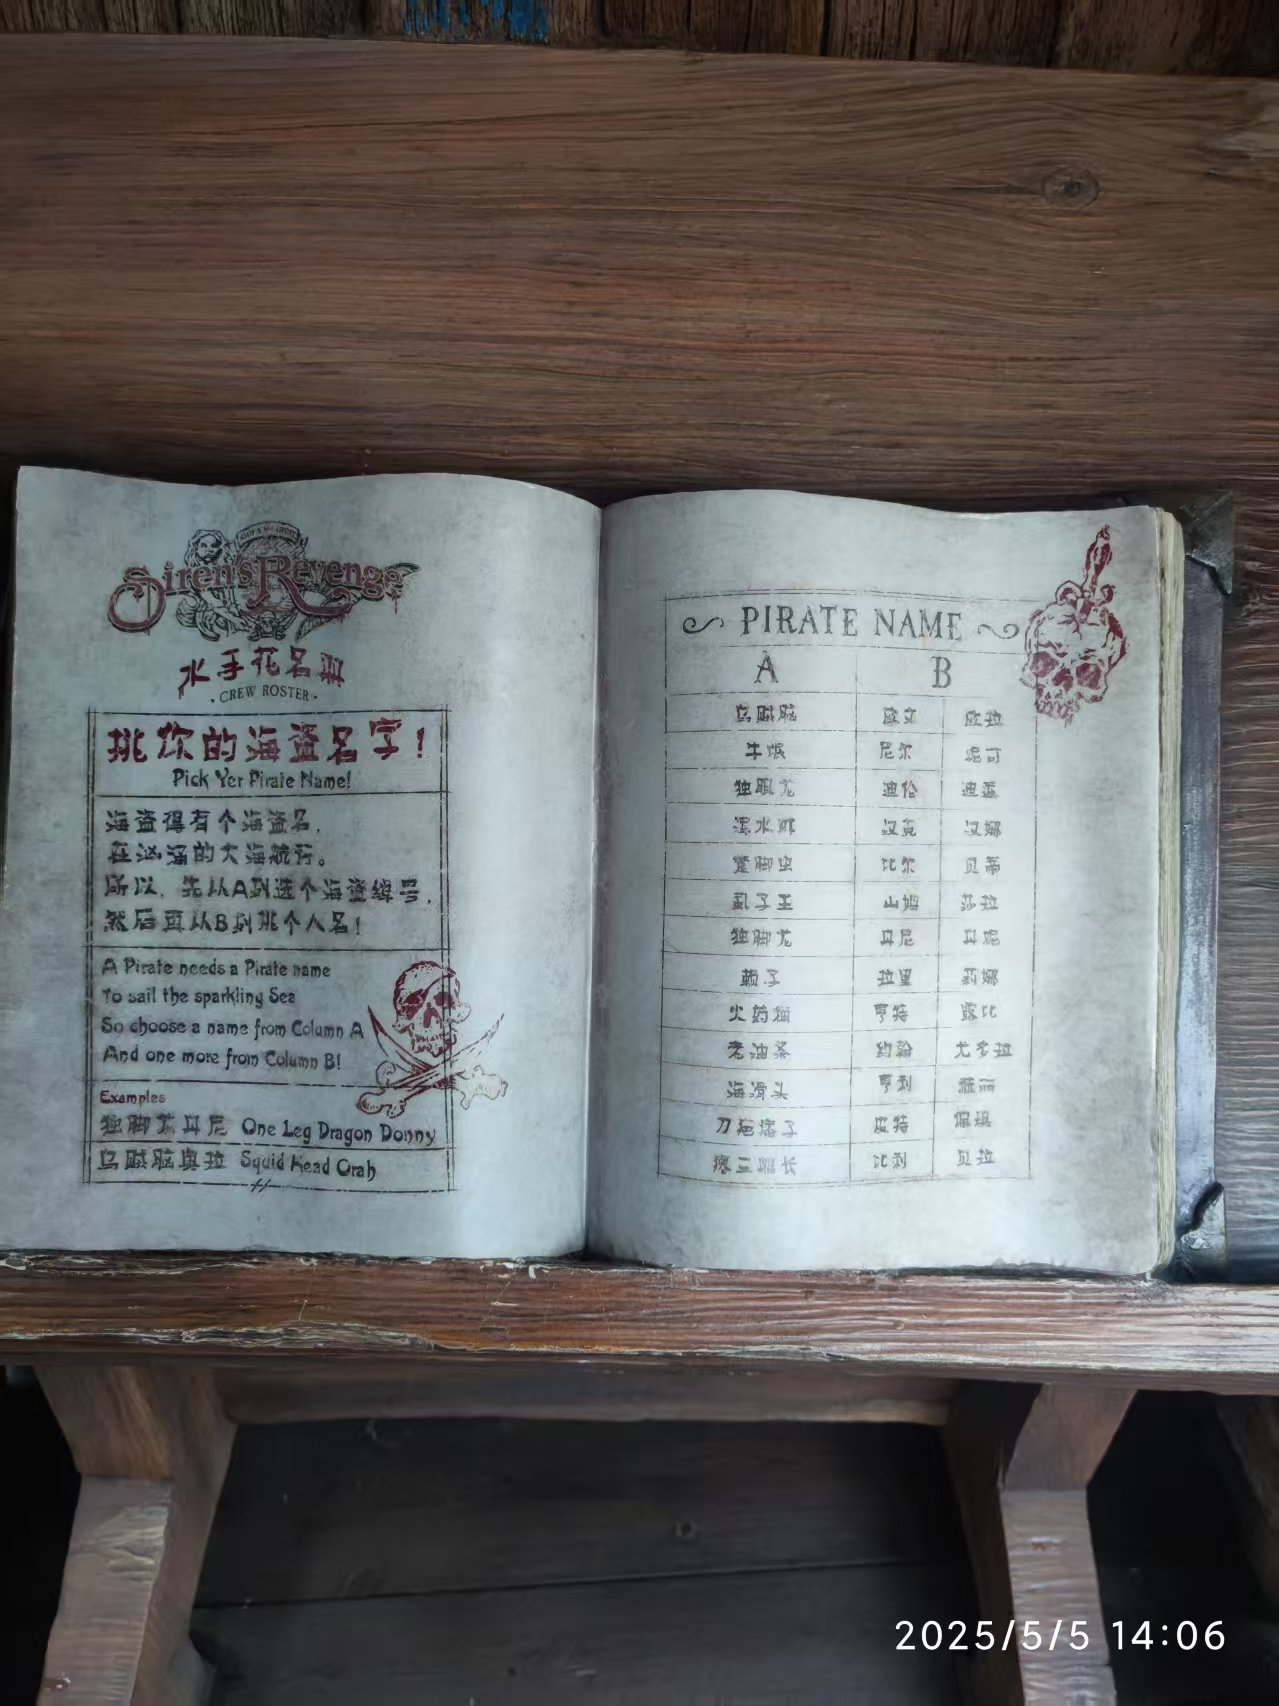 Siren's Revenge
水手花名册
CREW ROSTER
挑你的海盗名字！
Pick Yer Pirate Name!
海盗得有个海盗名，
在汹涌的大海航行。
所以，先从A列选个海盗绰号，
然后再从B列挑个人名！
A Pirate needs a Pirate name
To sail the sparkling Sea
So choose a name from Column A
And one more from Column B!
Examples
独脚龙丹尼 One Leg Dragon Donny
乌贼脑奥拉 Squid Head Orah
PIRATE NAME
A B
乌贼脑 欧文 欧拉
牛饭 尼尔 妮可
独眼龙 迪伦 迪
水 汉克 汉娜
蹩脚虫 比尔 贝蒂
虱子王 山姆 莎拉
独脚龙 丹尼 丹妮
赖子 拉里 莉娜
火药 亨特 露比
老油条 约翰 尤多拉
海滑头 亨利 雅丽
刀疤痞子 皮特 佩琪
瘪三船长 比利 贝拉
2025/5/5 14:06